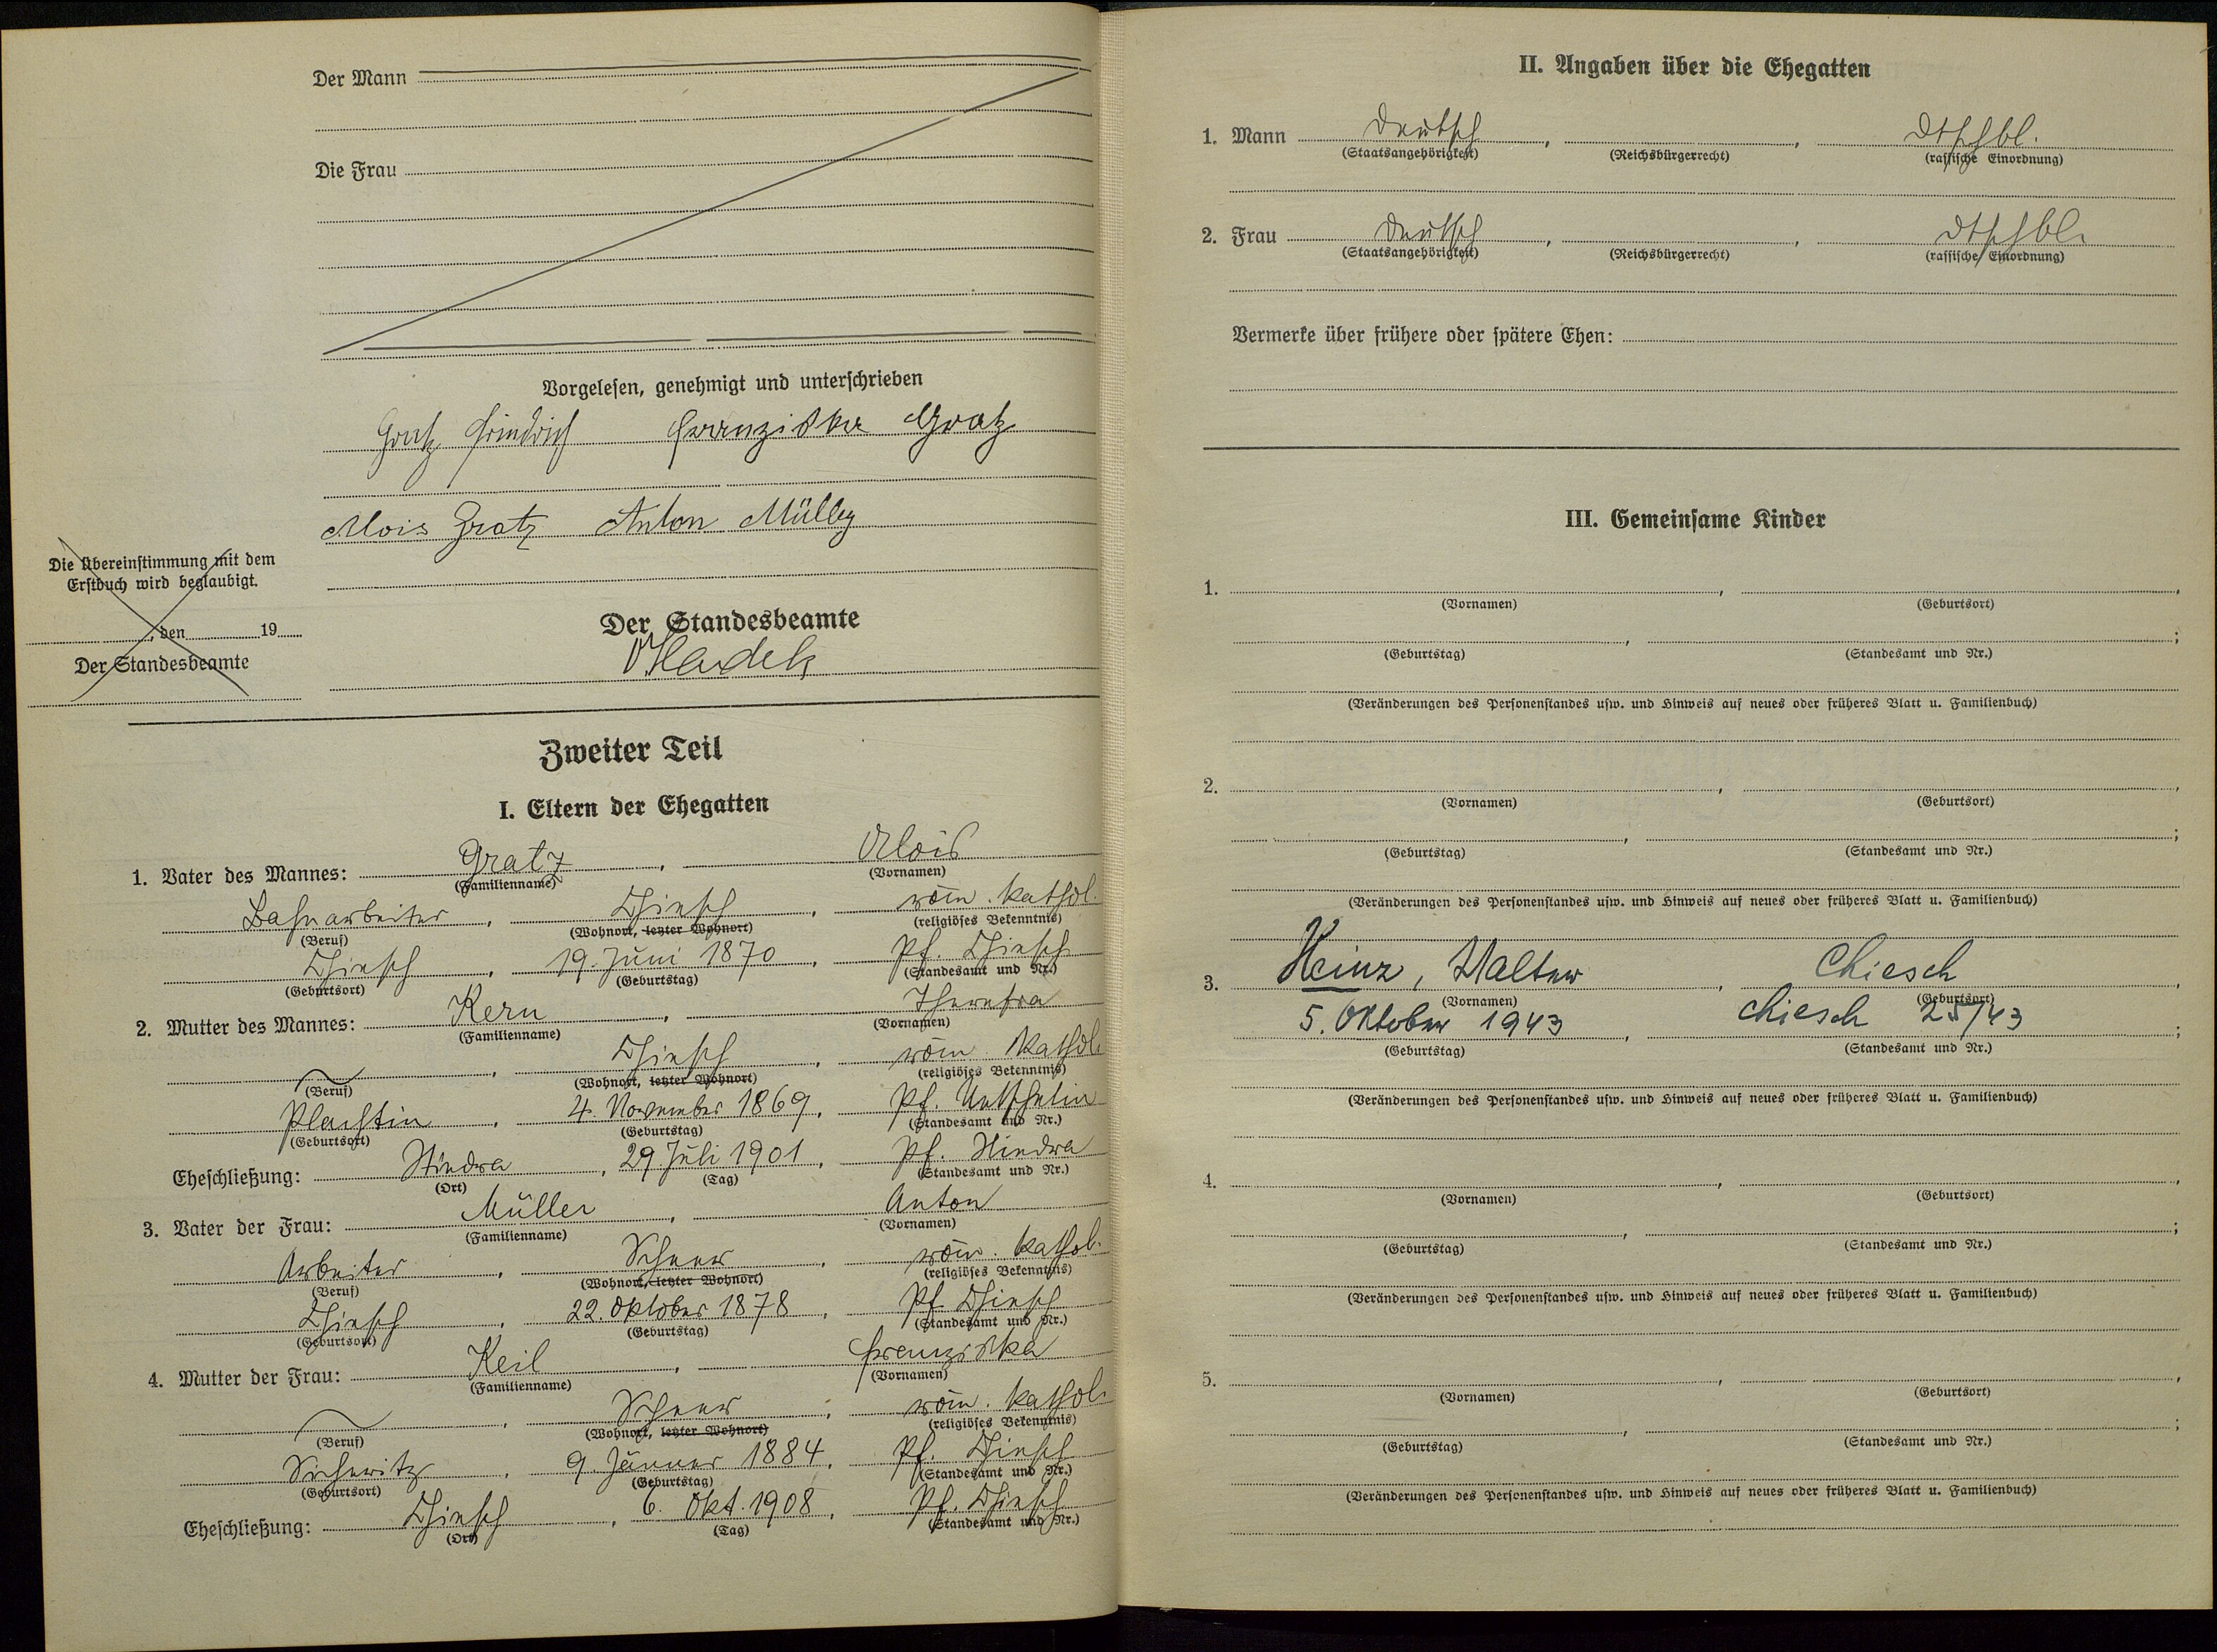 Der Mann
Die Frau
Vorgelesen, genehmigt und unterschrieben
Gratz Friedrich Franziska Gratz
Alois Gratz Anton Müller
Die Übereinstimmung mit dem
Erstbuch wird beglaubigt.
, den 19
Der Standesbeamte
Der Standesbeamte
Zweiter Teil
I. Eltern der Ehegatten
1. Vater des Mannes: Gratz, Alois
(Familienname) (Vornamen)
Bahnarbeiter, Chiesch, röm. kathol.
(Beruf) (Wohnort, letzter Wohnort) (religiöses Bekenntnis)
Chiesch, 19. Juni 1870, Pf. Chiesch
(Geburtsort) (Geburtstag) (Standesamt und Nr.)
2. Mutter des Mannes: Kern, Theresia
(Familienname) (Vornamen)
, Chiesch, röm. kathol.
(Beruf) (Wohnort, letzter Wohnort) (religiöses Bekenntnis)
Plachtin, 4. November 1869, Pf. Netschetin
(Geburtsort) (Geburtstag) (Standesamt und Nr.)
Eheschließung: Stiedra, 29 Juli 1901, Pf. Stiedra
(Ort) (Tag) (Standesamt und Nr.)
3. Vater der Frau: Müller, Anton
(Familienname) (Vornamen)
Arbeiter, röm. kathol.
(Beruf) (Wohnort, letzter Wohnort) (religiöses Bekenntnis)
Chiesch, 22. Oktober 1878, Pf. Chiesch
(Geburtsort) (Geburtstag) (Standesamt und Nr.)
4. Mutter der Frau: Keil, Franziska
(Familienname) (Vornamen)
, röm. kathol.
(Beruf) (Wohnort, letzter Wohnort) (religiöses Bekenntnis)
9. Jänner 1884, Pf. Chiesch
(Geburtsort) (Geburtstag) (Standesamt und Nr.)
Eheschließung: Chiesch, 6. Okt. 1908, Pf. Chiesch
(Ort) (Tag) (Standesamt und Nr.)
II. Angaben über die Ehegatten
1. Mann Deutsch, , dtschbl.
(Staatsangehörigkeit) (Reichsbürgerrecht) (rassische Einordnung)
2. Frau Deutsch, , dtschbl.
(Staatsangehörigkeit) (Reichsbürgerrecht) (rassische Einordnung)
Vermerke über frühere oder spätere Ehen:
III. Gemeinsame Kinder
1. , ,
(Vornamen) (Geburtsort)
, ;
(Geburtstag) (Standesamt und Nr.)
(Veränderungen des Personenstandes usw. und Hinweis auf neues oder früheres Blatt u. Familienbuch)
2. , ,
(Vornamen) (Geburtsort)
, ;
(Geburtstag) (Standesamt und Nr.)
(Veränderungen des Personenstandes usw. und Hinweis auf neues oder früheres Blatt u. Familienbuch)
3. Heinz, Walter, Chiesch,
(Vornamen) (Geburtsort)
5. Oktober 1943, Chiesch 25/43;
(Geburtstag) (Standesamt und Nr.)
(Veränderungen des Personenstandes usw. und Hinweis auf neues oder früheres Blatt u. Familienbuch)
4. , ,
(Vornamen) (Geburtsort)
, ;
(Geburtstag) (Standesamt und Nr.)
(Veränderungen des Personenstandes usw. und Hinweis auf neues oder früheres Blatt u. Familienbuch)
5. , ,
(Vornamen) (Geburtsort)
, ;
(Geburtstag) (Standesamt und Nr.)
(Veränderungen des Personenstandes usw. und Hinweis auf neues oder früheres Blatt u. Familienbuch)